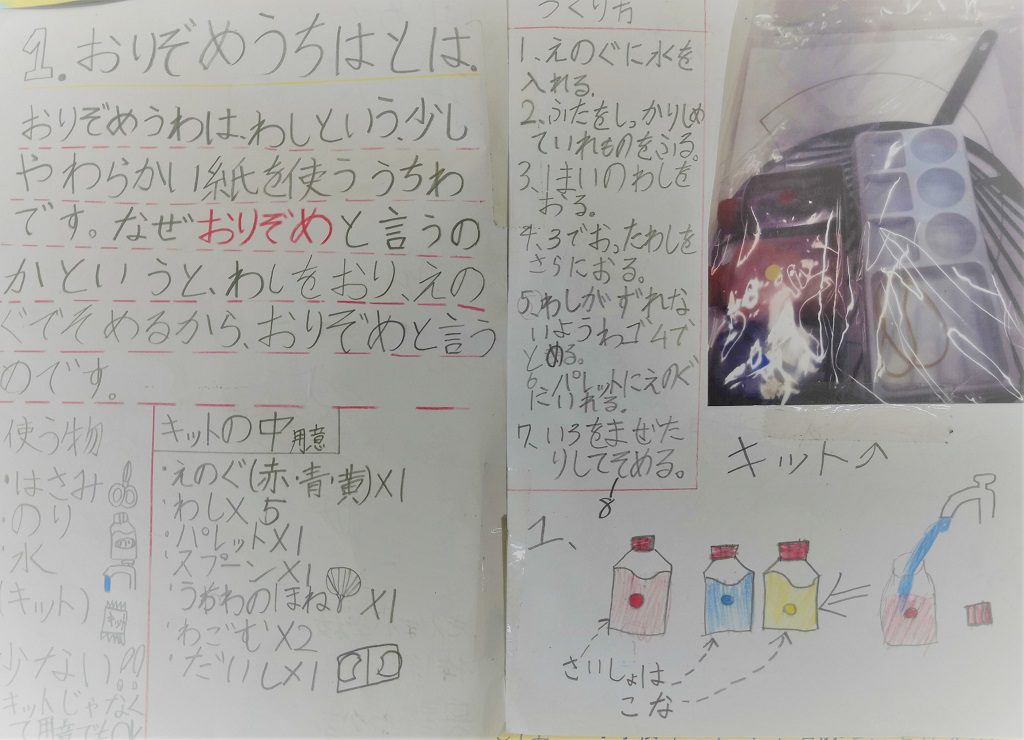 1.おりぞめうちはとは.
おりぞめうわは、わしという、少し
やわらかい紙を使ううちわ
です。なぜおりぞめと言うの
かというと、わしをおり、えの
ぐでそめるから、おりぞめと言う
のです。
使う物
・はさみ
・のり
・水
(キット)
少ない!!
キットじゃなく
て用意でもOK
キットの中 用意
・えのぐ(赤・青・黄)×1
・わし×5
・パレット×1
・スプーン×1
・うちわのほね×1
・わごむ×2
・だいし×1
つくり方
1、えのぐに水を
入れる.
2、ふたをしっかりしめ
ていれものをふる。
3、1まいのわしを
おる。
4、3でおったわしを
さらにおる。
5、わしがずれな
いようわゴムで
とめる。
6、パレットにえのぐ
にいれる.
7、いろをまぜた
りしてそめる。
8
キット↗
1、
さいしょは
こな